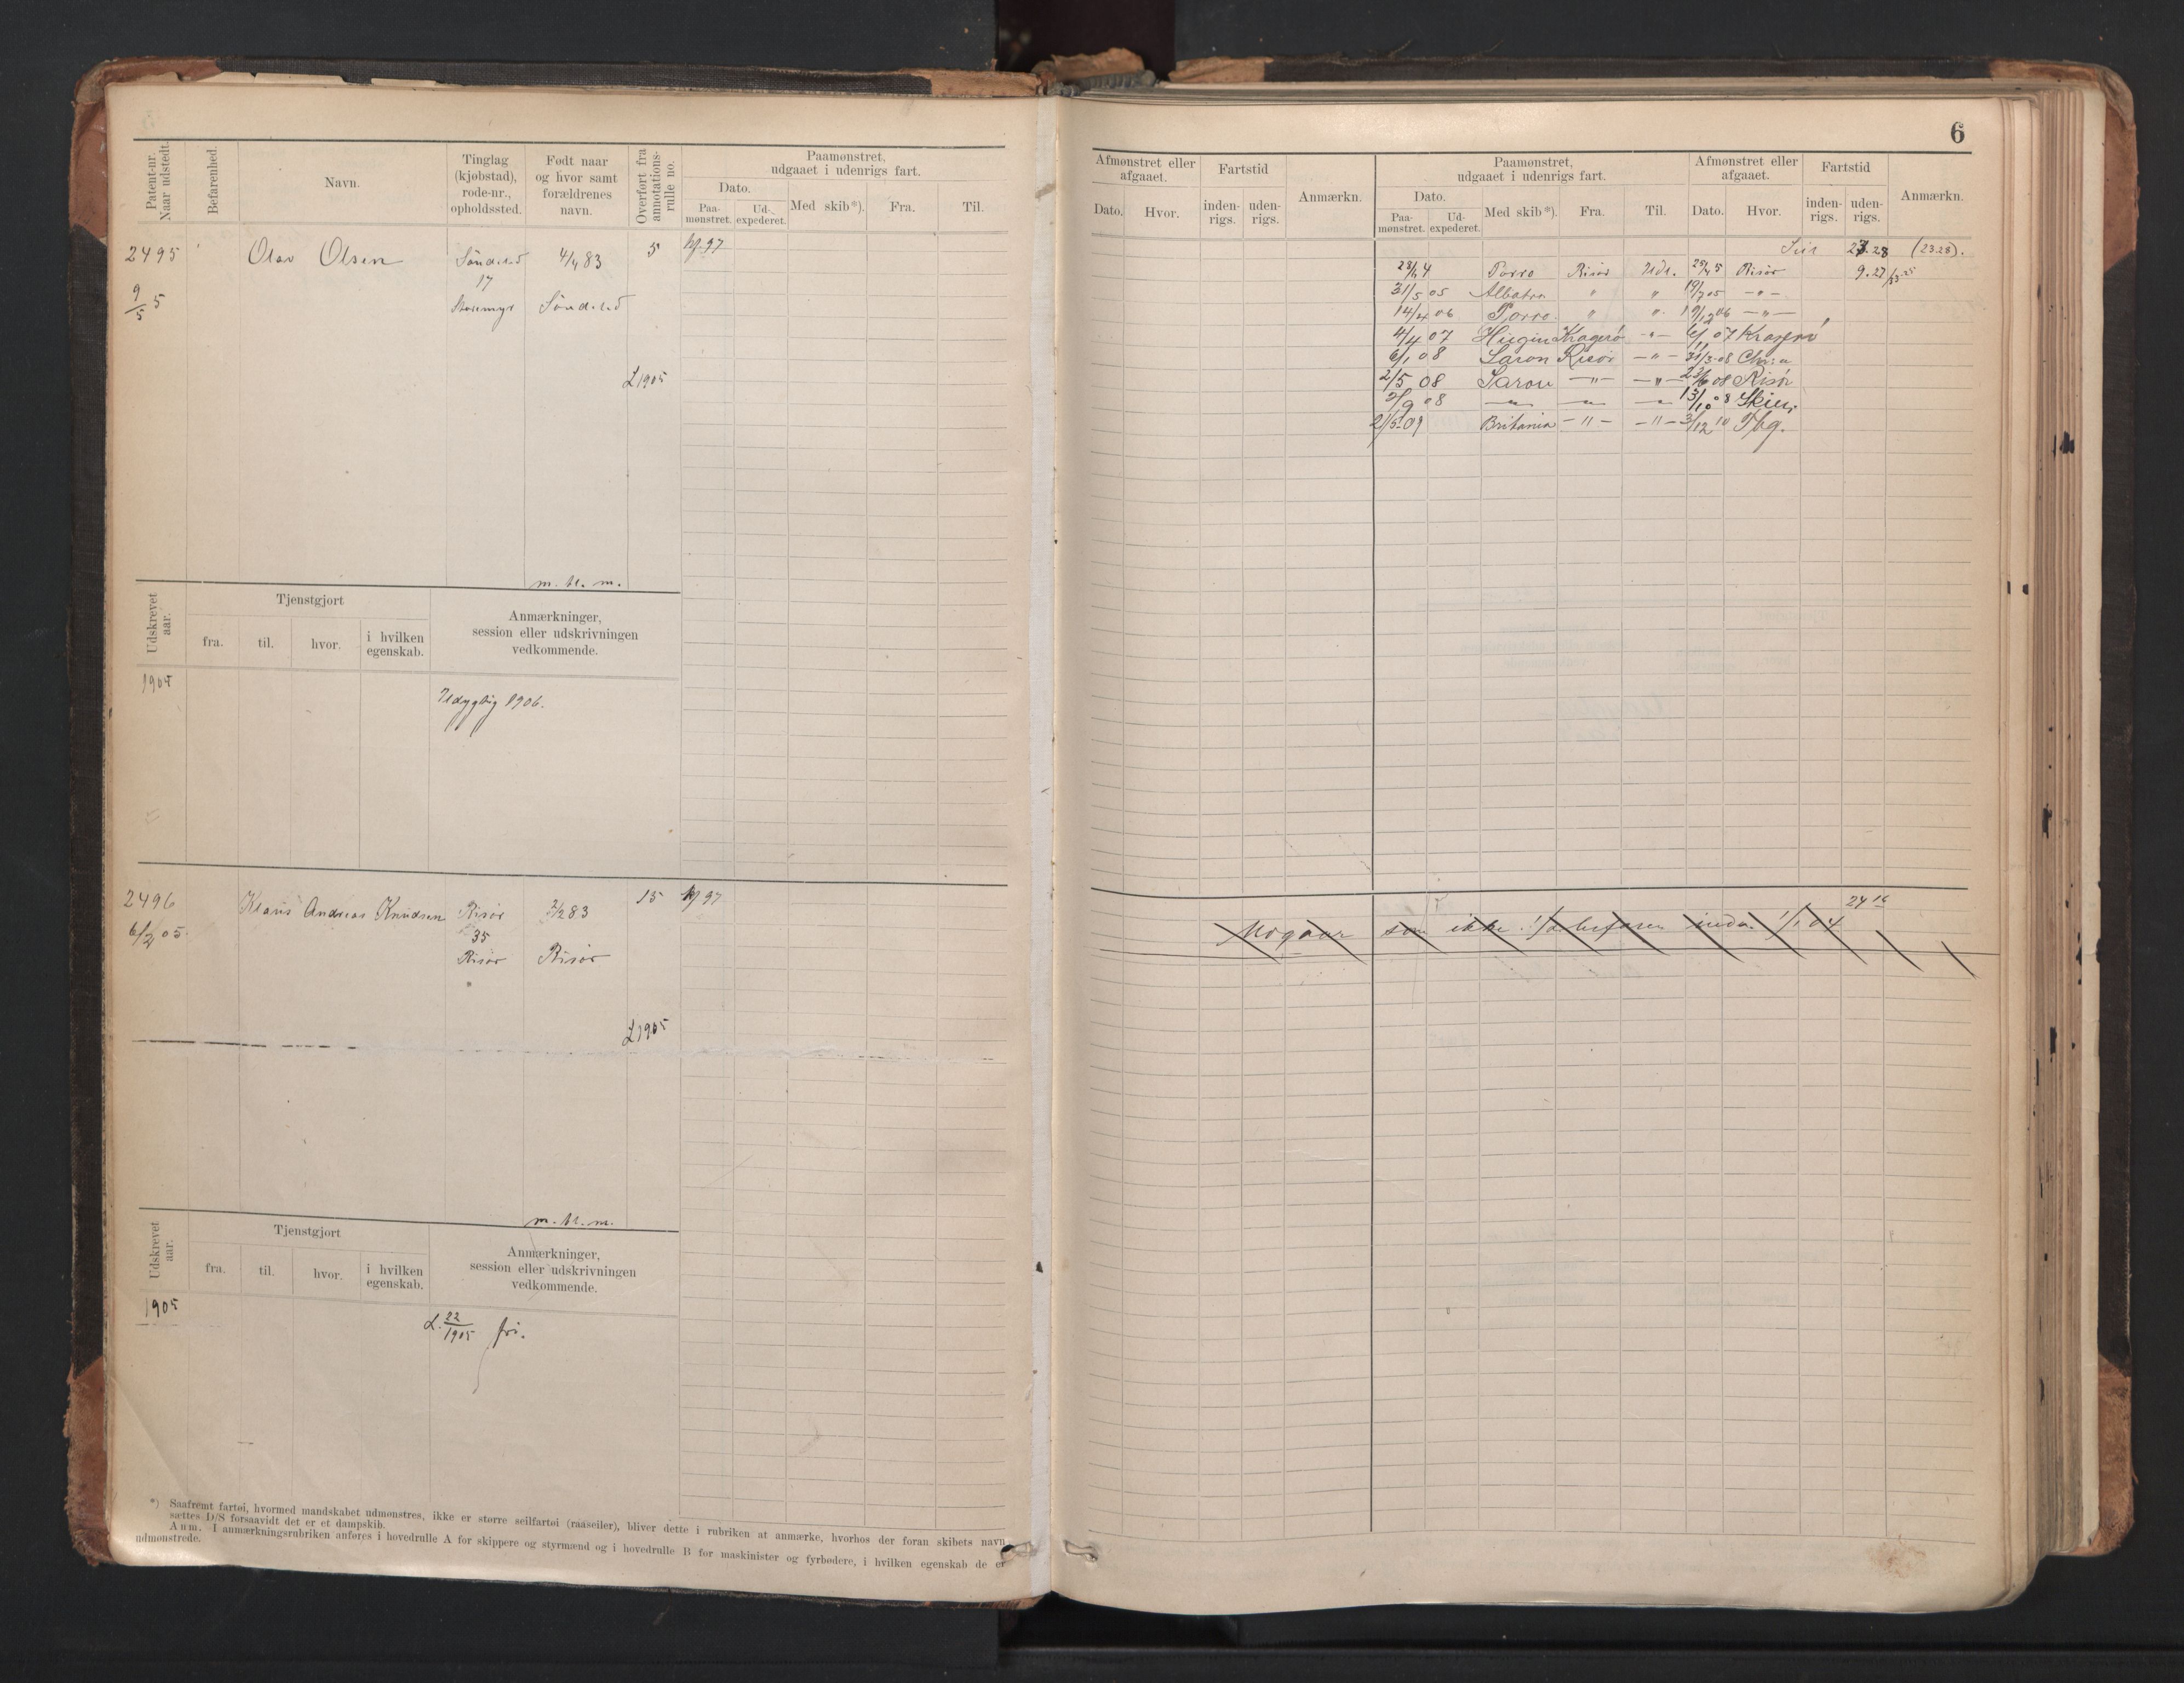 6
Patent-nr. Naar udstedt.
Befarenhed.
Navn.
Tinglag (kjøbstad), rode-nr., opholdssted.
Født naar og hvor samt forældrenes navn.
Overført fra annotations-rulle no.
Paamønstret, udgaaet i udenrigs fart.
Dato.
Paa-mønstret.
Ud-expederet.
Med skib*).
Fra.
Til.
2495
Olav Olsen
4/4 83
5
97
9/5 5
17
L 1905
m. kl. m.
Udskrevet aar.
Tjenstgjort
fra.
til.
hvor.
i hvilken egenskab.
Anmærkninger, session eller udskrivningen vedkommende.
1905
Udygtig 1906.
2496
Klaus Andreas Knudsen
Risør
83
15
97
6/2 05.
35
Risør
Risør
L 1905
m. kl. m.
Udskrevet aar.
Tjenstgjort
fra.
til.
hvor.
i hvilken egenskab.
Anmærkninger, session eller udskrivningen vedkommende.
1905
L. 22/1905 fri.
*) Saafremt fartøi, hvormed mandskabet udmønstres, ikke er større seilfartøi (raaseiler), bliver dette i rubriken at anmærke, hvorhos der foran skibets navn
sættes D/S forsaavidt det er et dampskib.
Anm. I anmærkningsrubriken anføres i hovedrulle A for skippere og styrmænd og i hovedrulle B for maskinister og fyrbødere, i hvilken egenskab de er
udmønstrede.
Afmønstret eller afgaaet.
Dato.
Hvor.
Fartstid
inden-rigs.
uden-rigs.
Anmærkn.
Paamønstret, udgaaet i udenrigs fart.
Dato.
Paa-mønstret.
Ud-expederet.
Med skib*).
Fra.
Til.
Afmønstret eller afgaaet.
Dato.
Hvor.
Fartstid
inden-rigs.
uden-rigs.
Anmærkn.
(23.28).
Porro Risør Udr. Risør 9.27
31/5 05 " " 19/7 05 — " —
14/4 06 Porro " " — " —
4/4 07 Hugin Kragerø — " — 07 Kragerø
6/1 08 Saron Risør — " — 31/3 08 Chr:a
2/5 08 Saron — " — — " — 08 Risør
2/9 08 — " — — " — — " — 13/10 08
21/5 09 Britania — " — — " — 3/12 10 Tbg.
som ikke befaren 1/1 04